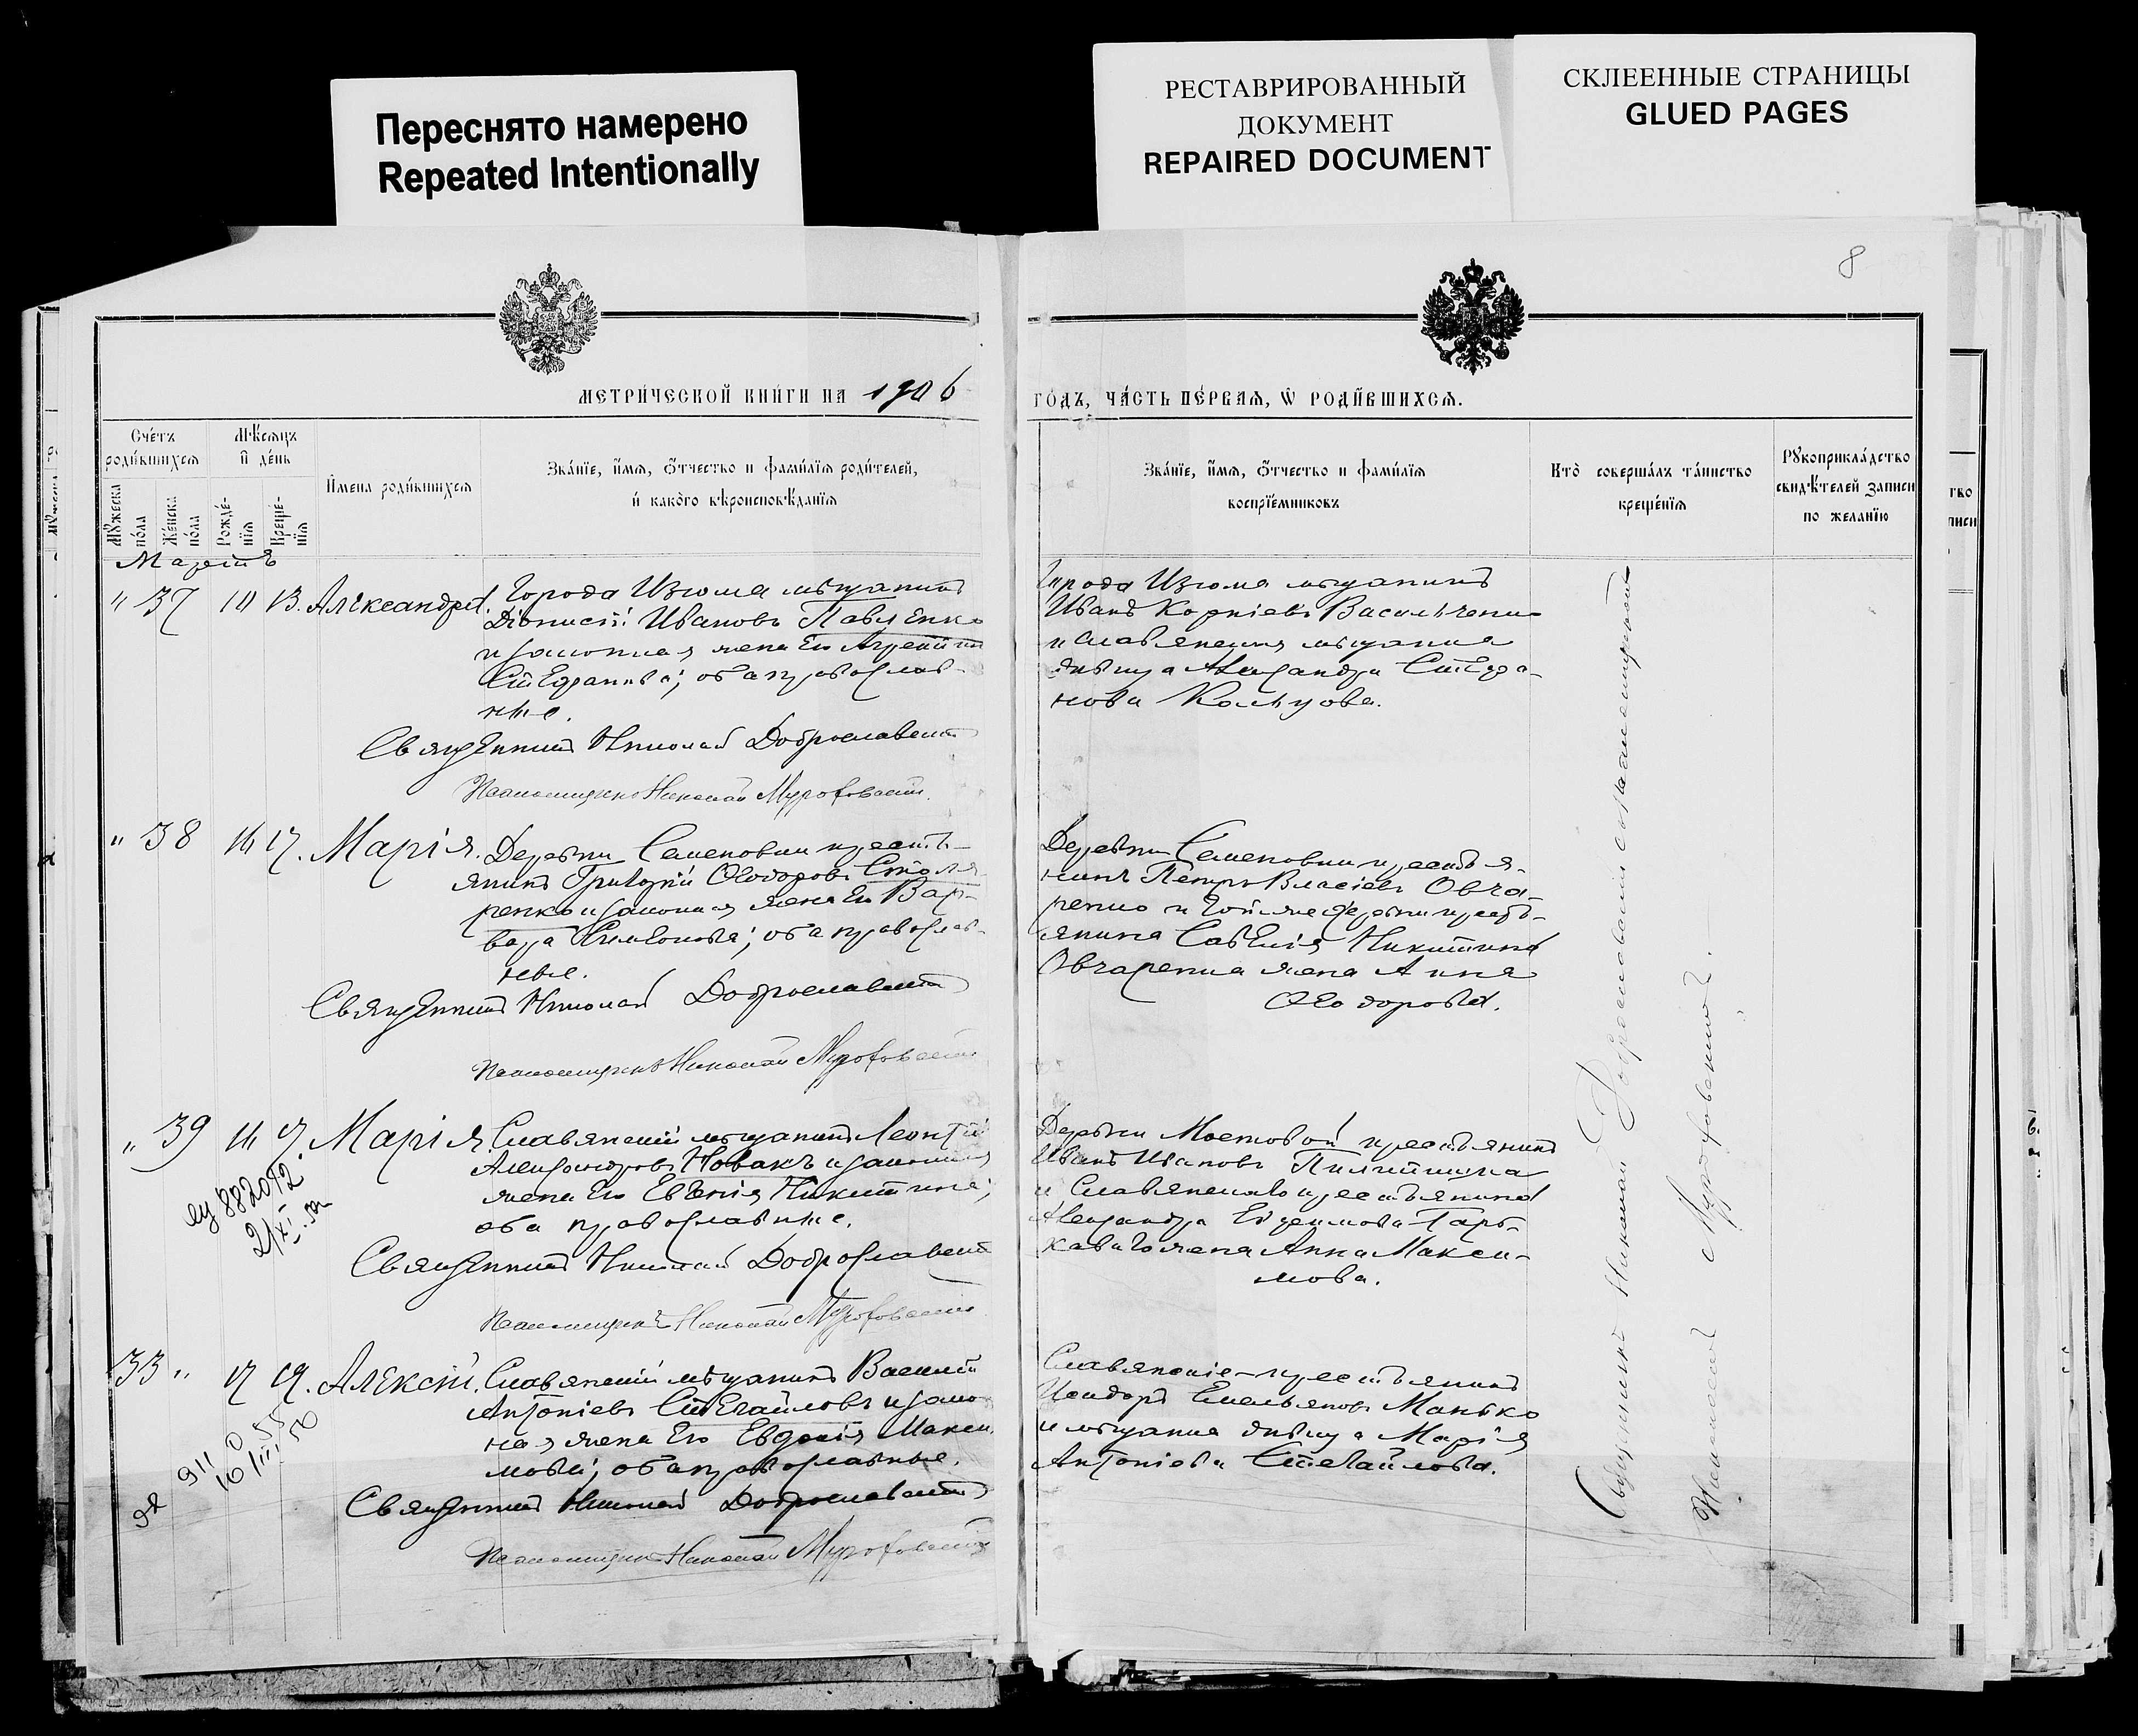 Переснято намерено
Repeated Intentionally
РЕСТАВРИРОВАННЫЙ
ДОКУМЕНТ
REPAIRED DOCUMENT
СКЛЕЕННЫЕ СТРАНИЦЫ
GLUED PAGES
8
МЕТРИ́ЧЕСКОЙ КНИ́ГИ НА 1906
ГО́ДЪ, ЧА́СТЬ ПЕ́РВАѦ, Ѡ РОДИ́ВШИХСѦ.
Сче́тъ
роди́вшихсѧ
Мѣ́сѧцъ
и де́нь
Мꙋ́жеска
по́ла
Же́нска
по́ла
Рожде́-
нїѧ
Креще́-
нїѧ
И҆мена роди́вшихсѧ
Зва́нїе, и҆́мѧ, ѻ҆́тчество и фами́лїѧ роди́телей,
и҆ како́гѡ вѣроисповѣ́данїѧ
Зва́нїе, и҆́мѧ, ѻ҆́тчество и фами́лїѧ
воспрїе́мниковъ
Кто̀ соверша́лъ та́инство
креще́нїѧ
Рꙋкоприкла́дство
свидѣ́телей за́писи
по жела́нїю
Мартъ
" 37 13. Александра.
Города Изюма мѣщанинъ
Діонисій Ивановъ Павленко
и законная жена его
Стефанова; оба православ-
ные.
Священникъ Николай Доброславскій
Псаломщикъ Николай
Города Изюма мѣщанинъ
Иванъ Корніевъ Васильченко
и славянская мѣщанка
дѣвица Александра Стефа-
нова
" 38 17. Марія.
Деревни Семеновки кресть-
янинъ Григорій Ѳеодоровъ Столя-
ренко и законная жена его Вар-
вара Симеонова; оба православ-
ные.
Священникъ Николай Доброславскій
Псаломщикъ Николай
Деревни Семеновки крестья-
нинъ Петръ Власіевъ Овча-
ренко и той же деревни кресть-
янина Савелія Никитина
Овчаренка жена Анна
Ѳеодорова.
" 39 17. Марія.
Славянскій мѣщанинъ Леонтій
Александровъ Новакъ и законная
жена его Евгенія Никитина;
оба православные.
Священникъ Николай Доброславскій
Псаломщикъ Николай
882092
Деревни Маяковой крестьянинъ
Иванъ Ивановъ
и Славянскаго крестьянина
Александра Евфимова
жена Анна Макси-
мова.
33 " 17 19. Алексій.
Славянскій мѣщанинъ Василій
Антоніевъ Стегайловъ и закон-
ная жена его Евдокія Макси-
мова; оба православные.
Священникъ Николай Доброславскій
Псаломщикъ Николай
Славянскіе - крестьянинъ
Исидоръ Емельяновъ Манько
и мѣщанка дѣвица Марія
Антоніева Стегайлова.
Священникъ Николай Доброславскій съ псаломщикомъ
Николаемъ